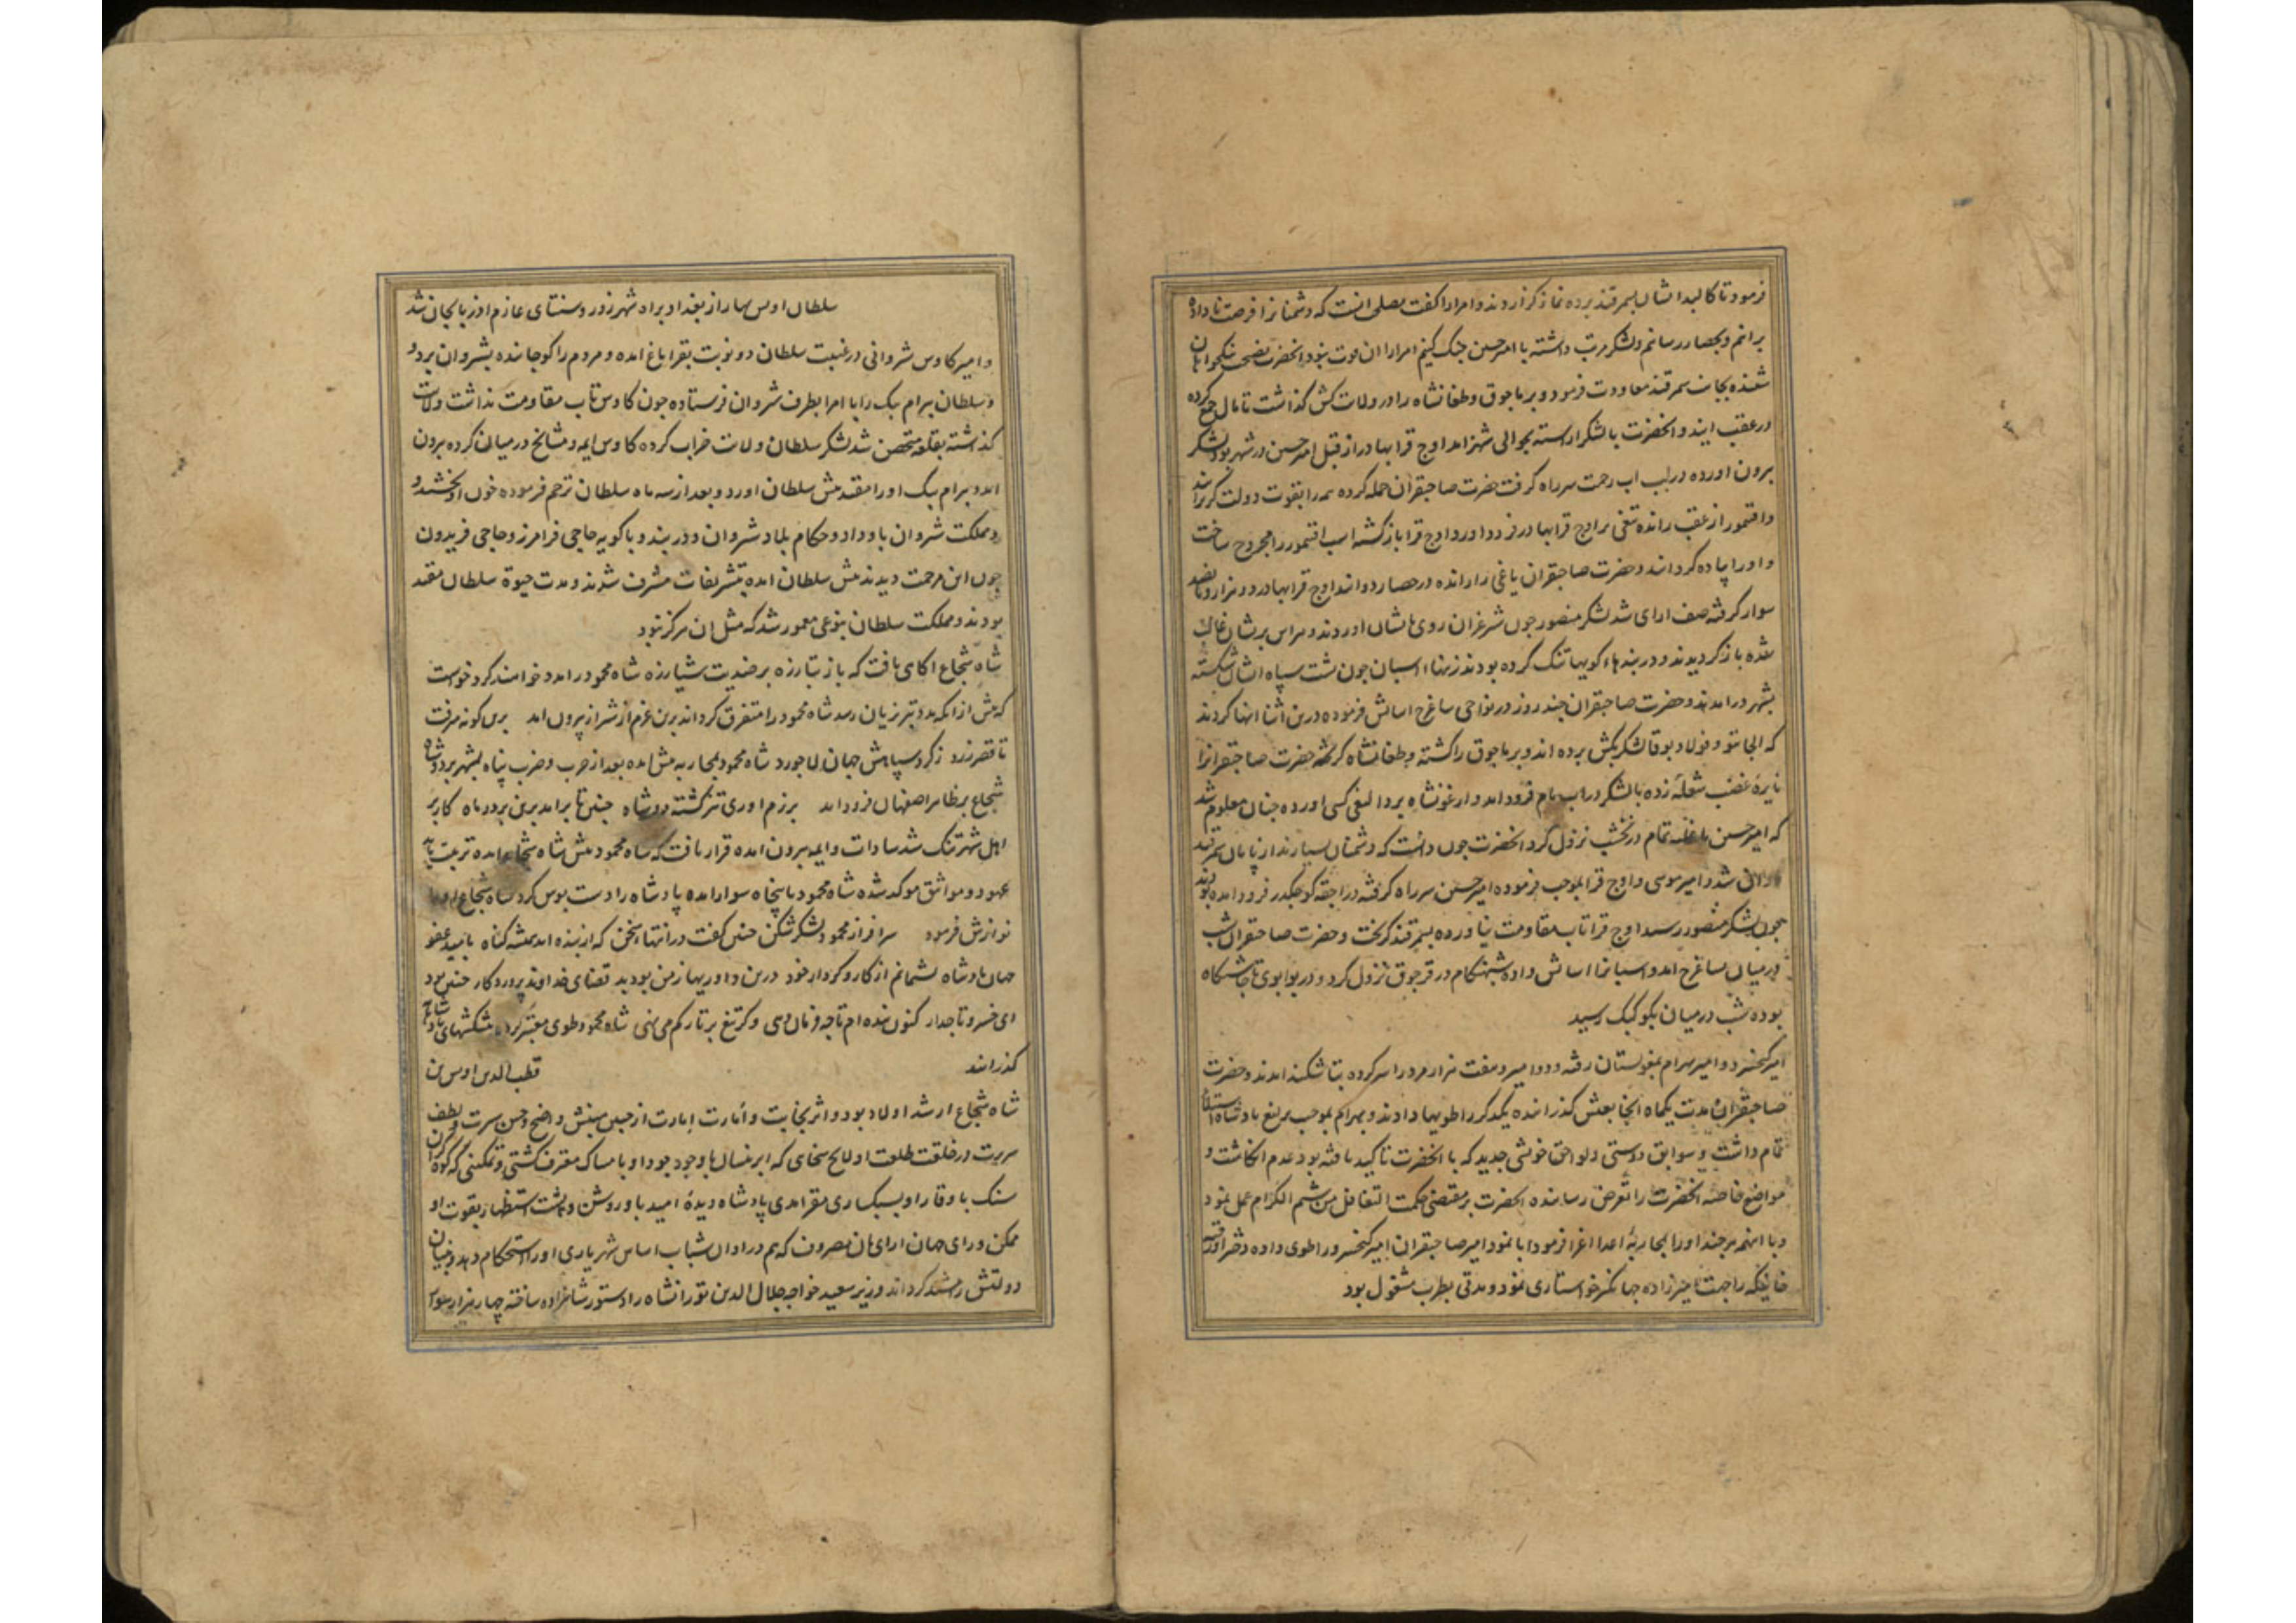 فرمود تا کالبد ایشان بسمرقند برده نماز کزاردند و امرا را کفت مصلی انست که دشمنانرا فرصت نا داده
برانم و بحصار رسانم و لشکر مرتب داشته با امیر حسین جنک کنیم امرا را ان قوت نبود انحضرت نصیحت نیکخواهان
شنیده بجانب سمرقند معاودت فرمود و برباجوق و طغانشاه را در ولایت کش کذاشت تا مال جمع کرده
در عقب ایند و انحضرت با لشکر اراسته بحوالی شهر امد اوج قرا بهادر از قبل امیر حسین در شهر بود لشکر
برون اورده در لب اب رحمت سر راه کرفت حضرت صاحبقران حمله کرده همه را بقوت دولت کریزانید
و اقتمور از عقب رانده تیغی بر اوج قرا بهادر فرود اورد اوج قرا باز کشته اسب اقتمور را مجروح ساخت
و او را پیاده کردانید و حضرت صاحبقران یاغی را رانده در حصار دوانید اوج قرا بهادر دو هزار و پانصد
سوار کرفته صف ارای شد لشکر منصور چون شیر غران روی بایشان اوردند و هراس بریشان غالب
شده باز کردیدند و دربندهاء کویها تنک کرده بودند زینهاء اسبان چون پشت سپاه ایشان شکسته
بشهر در امدند و حضرت صاحبقران چند روز در نواحی ساغرج اسایش فرموده درین اثنا انها کردند
که الجایتو و فولاد بوقا لشکر بکش برده اند و برباجوق را کشته و طغانشاه کریخته حضرت صاحبقرانرا
نایرهٔ غضب شعله زده با لشکر در اب یام فرود امد و ارغونشاه بردالیغی کسی اورده چنان معلوم شد
که امیر حسین با غلبه تمام در نخشب نزول کرد انحضرت چون دانست که دشمنان بسیارند از پایان سمرقند
روان شد و امیر موسی و اوج قرا بموجب فرموده امیر حسین سر راه کرفته در اجقه کوجکدر فرود امده بودند
چون لشکر منصور رسید اوج قرا تاب مقاومت نیاورده بسمرقند کریخت و حضرت صاحبقران شب
در میان بساغرج امد و اسبانرا اسایش داده شبهنکام در قرجوق نزول کرد و در یوابوی تا چاشتکاه
بوده شب در میان بکوکنک رسید
امیر کیخسرو و امیر بهرام بمغولستان رفته بودند و امیر و هفت هزار مرد را سر کرده بتاشکند امدند و حضرت
صاحبقران مدت یکماه انجا بعیش کذرانده یکدیکر را طویها دادند و بهرام بموجب یرلیغ پادشاه استقلال
تمام داشت و سوابق دوستی و لواحق خویشی جدید که با انحضرت تاکید یافته بود عدم انکاشت و
مواضع خاصه انحضرت را تعرض رسانده انحضرت بر مقتضی حکمت التغافل من شیم الکرام عمل نمود
و با انهمه هر چند او را بمحاربهٔ اعدا اغرا فرمود ابا نمود امیر صاحبقران امیر کیخسرو را طوی داده دختر او رقیه
خانیکه را جهت امیرزاده جهانکیر خواستاری نمود و مدتی بطرب مشغول بود
سلطان اویس بهار از بغداد براه شهرزور و سنتای عازم اذربایجان شد
و امیر کاوس شروانی در غیبت سلطان دو نوبت بقراباغ امده و مردم را کوچانده بشروان برد و
و سلطان بیرام بیک را با امرا بطرف شروان فرستاده چون کاوس تاب مقاومت نداشت ولایت
کذاشته بقلعه متحصن شد لشکر سلطان ولایت خراب کرده کاوس ایمه و مشایخ در میان کرده برون
امد و بیرام بیک او را مقید پیش سلطان اورد و بعد از سه ماه سلطان ترحم فرموده خون او بخشید و
و مملکت شروان باو داد و حکام بلاد شروان و دربند و باکویه حاجی فرامرز و حاجی فریدون
چون این مرحمت دیدند پیش سلطان امده بتشریفات مشرف شدند و مدت حیوة سلطان مقید
بودند و مملکت سلطان بنوعی معمور شد که مثل ان هرکز نبود
شاه شجاع اکاهی یافت که باز تبارزه بر ضدیت شیارزه شاه محمود را مدد خواهند کرد خواست
که پیش از انکه مدد تبریزیان رسد شاه محمود را متفرق کرداند برین عزم از شیراز بیرون امد برین کونه میرفت
تا قصر زرد ز کرد سپاهش جهان لاجورد شاه محمود بمحاربه پیش امده بعد از حرب و ضرب پناه بشهر برد و شاه
شجاع بر ظاهر اصفهان فرود امد برزم اوری تیز کشته دو شاه چنین تا برامد برین بر دو ماه کار بر
اهل شهر تنک شد سادات و ایمه بیرون امده قرار یافت که شاه محمود پیش شاه شجاع امده تربیت یابد
عهود و مواثیق موکد شده شاه محمود با پنجاه سوار امده پادشاه را دست بوس کرد شاه شجاع او را
نوازش فرمود سرافراز محمود لشکر شکن چنین کفت در انتهاء سخن که از بنده امد همیشه کناه بامید عفو
جهان پادشاه پشیمانم از کار و کردار خود درین داوریها ز من بود بد قضای خداوند پروردکار چنین بود
ای خسرو تاجدار کنون بنده ام تا چه فرمان دهی و کر تیغ بر تارکم می نهی شاه محمود طوی معتبر کرده پیشکشهای پادشاهانه
کذرانید قطب الدین اویس بن
شاه شجاع ارشد اولاد بود و اثر نجابت و أمارت إمارت از جبین مبینش واضح و حسن سیرت و لطف
سریرت در خلقت طلعت او لایح سخایی که ابر نیسان با وجود جود او بامساک معترف کشتی و تمکینی که کوه کران
سنک با وقار او بسبکساری مقر امدی پادشاه دیدهٔ امید باو روشن و پشت استظهار بقوت او
ممکن و رای جهان ارای بان مصروف که هم در اوان شباب اساس شهریاری او را استحکام دهد و بنیان
دولتش مشید کرداند وزیر سعید خواجه جلال الدین تورانشاه را دستور شاهزاده ساخته چهار هزار سوار